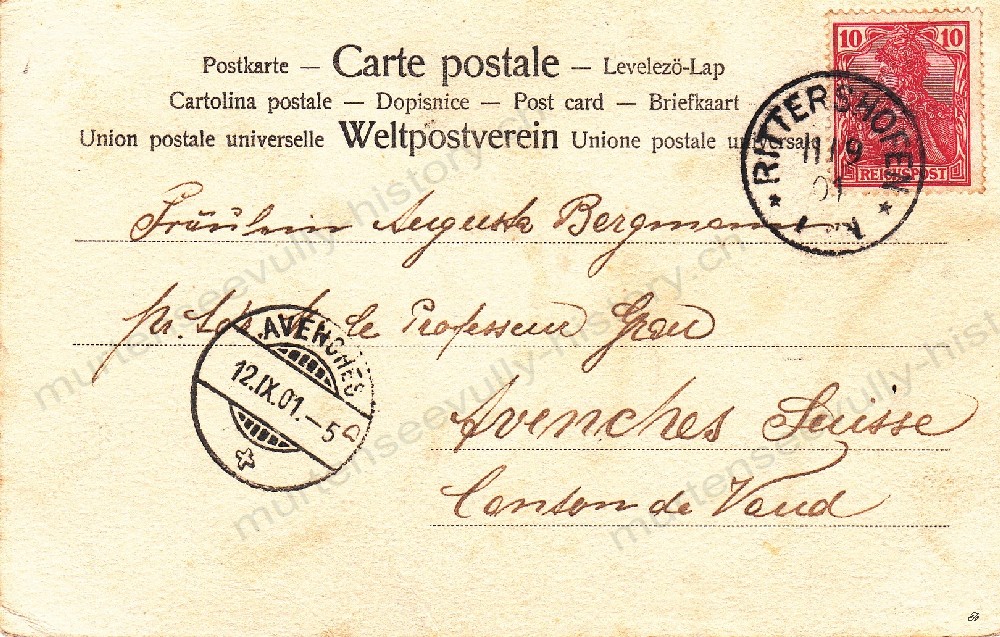 Postkarte — Carte postale — Levelezö-Lap
Cartolina postale — Dopisnice — Post card — Briefkaart
Union postale universelle Weltpostverein Unione postale universale
10 10
REICHSPOST
RITTERSHOFEN
11/9
01
Fräulein Auguste Bergmann
Professeur Grau
AVENCHES
12.IX.01.–5
Avenches Suisse
Canton de Vaud
murtenseevully-history.ch